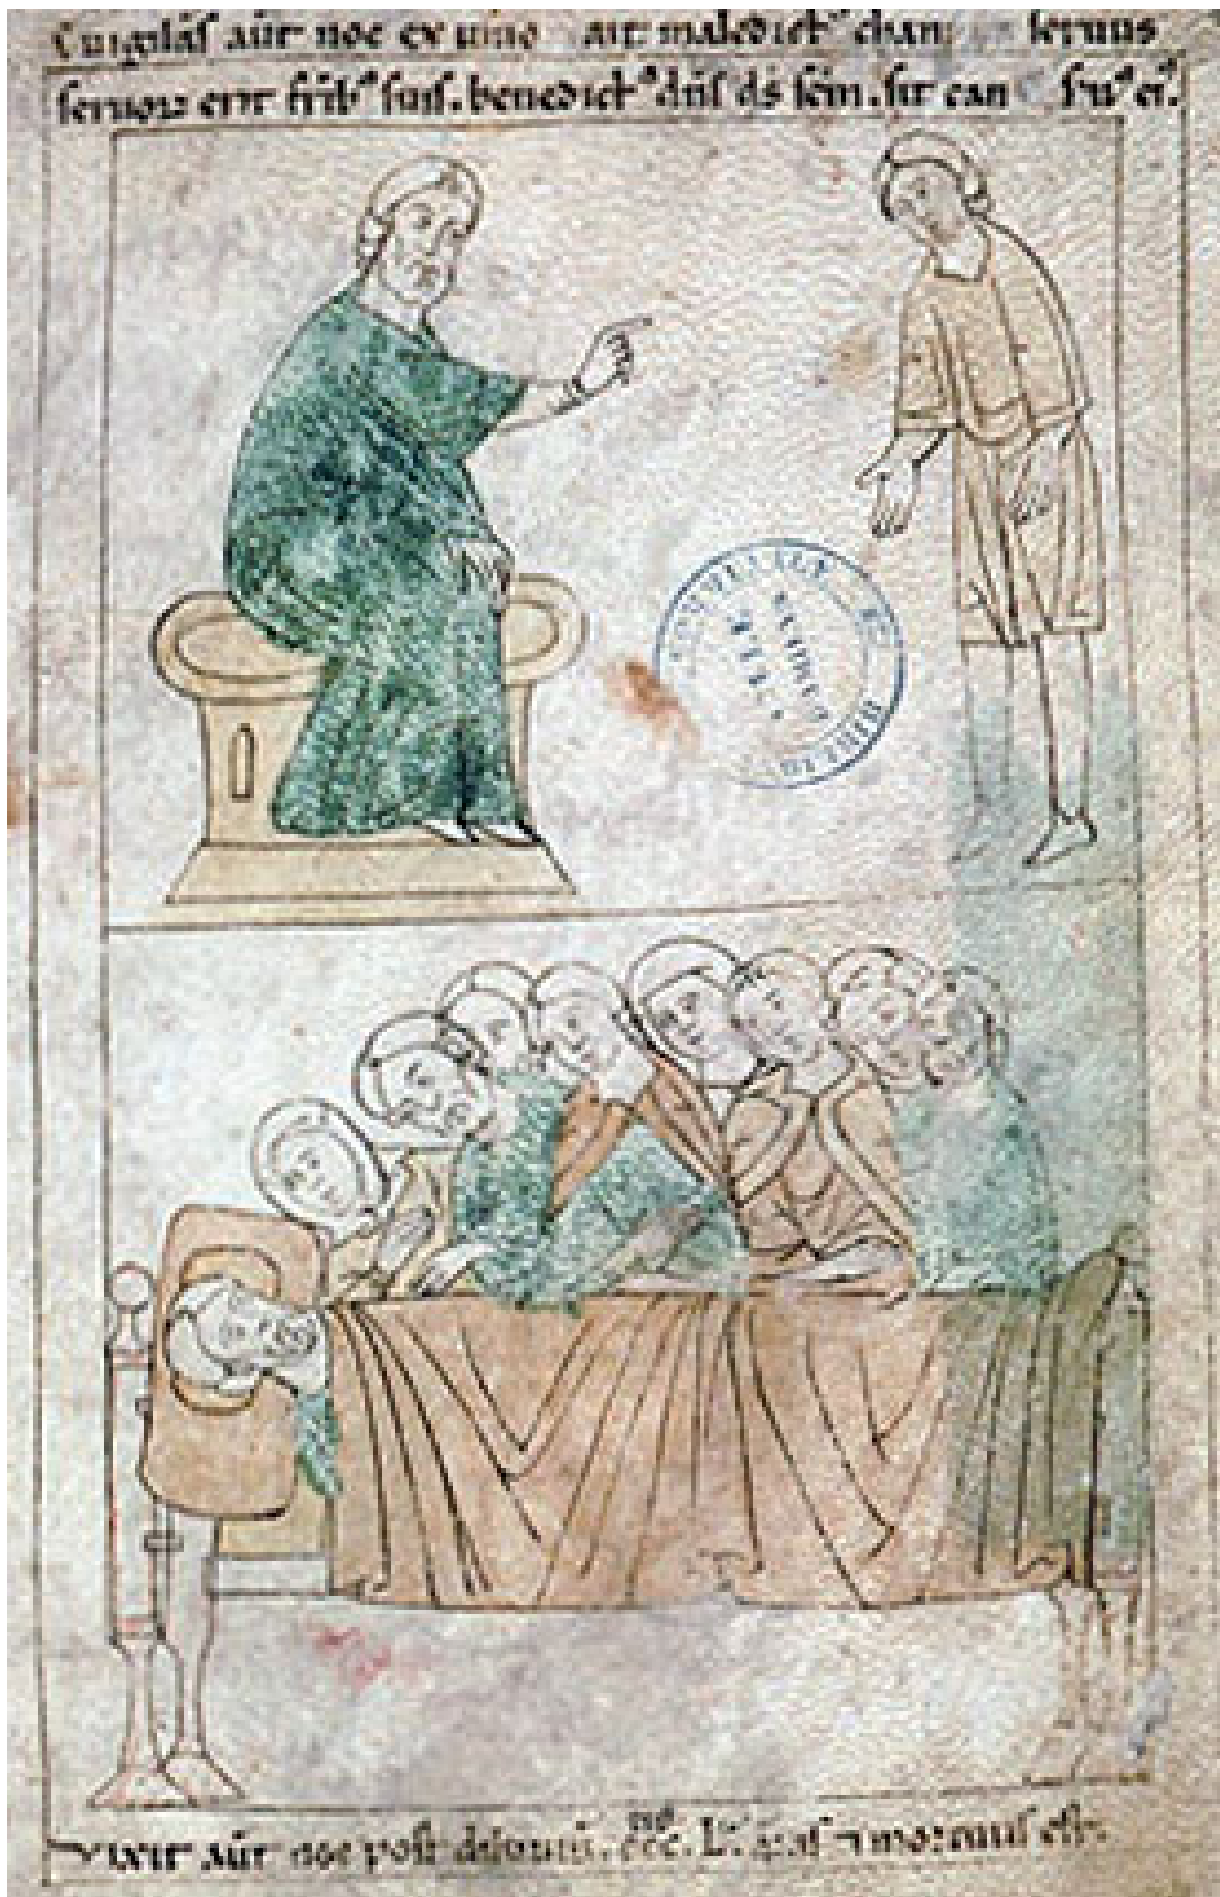 Euigilās aūt noe ex uino ait maledictꝰ chan seruus
seruoꝝ erit fr̄ibꝰ suis. benedictꝰ dn̄s ds̄ sem. sit can eiꝰ.
BIBLIO
Vixit aūt noe post diluuiū. ccc. L. ⁊ mortuus est.